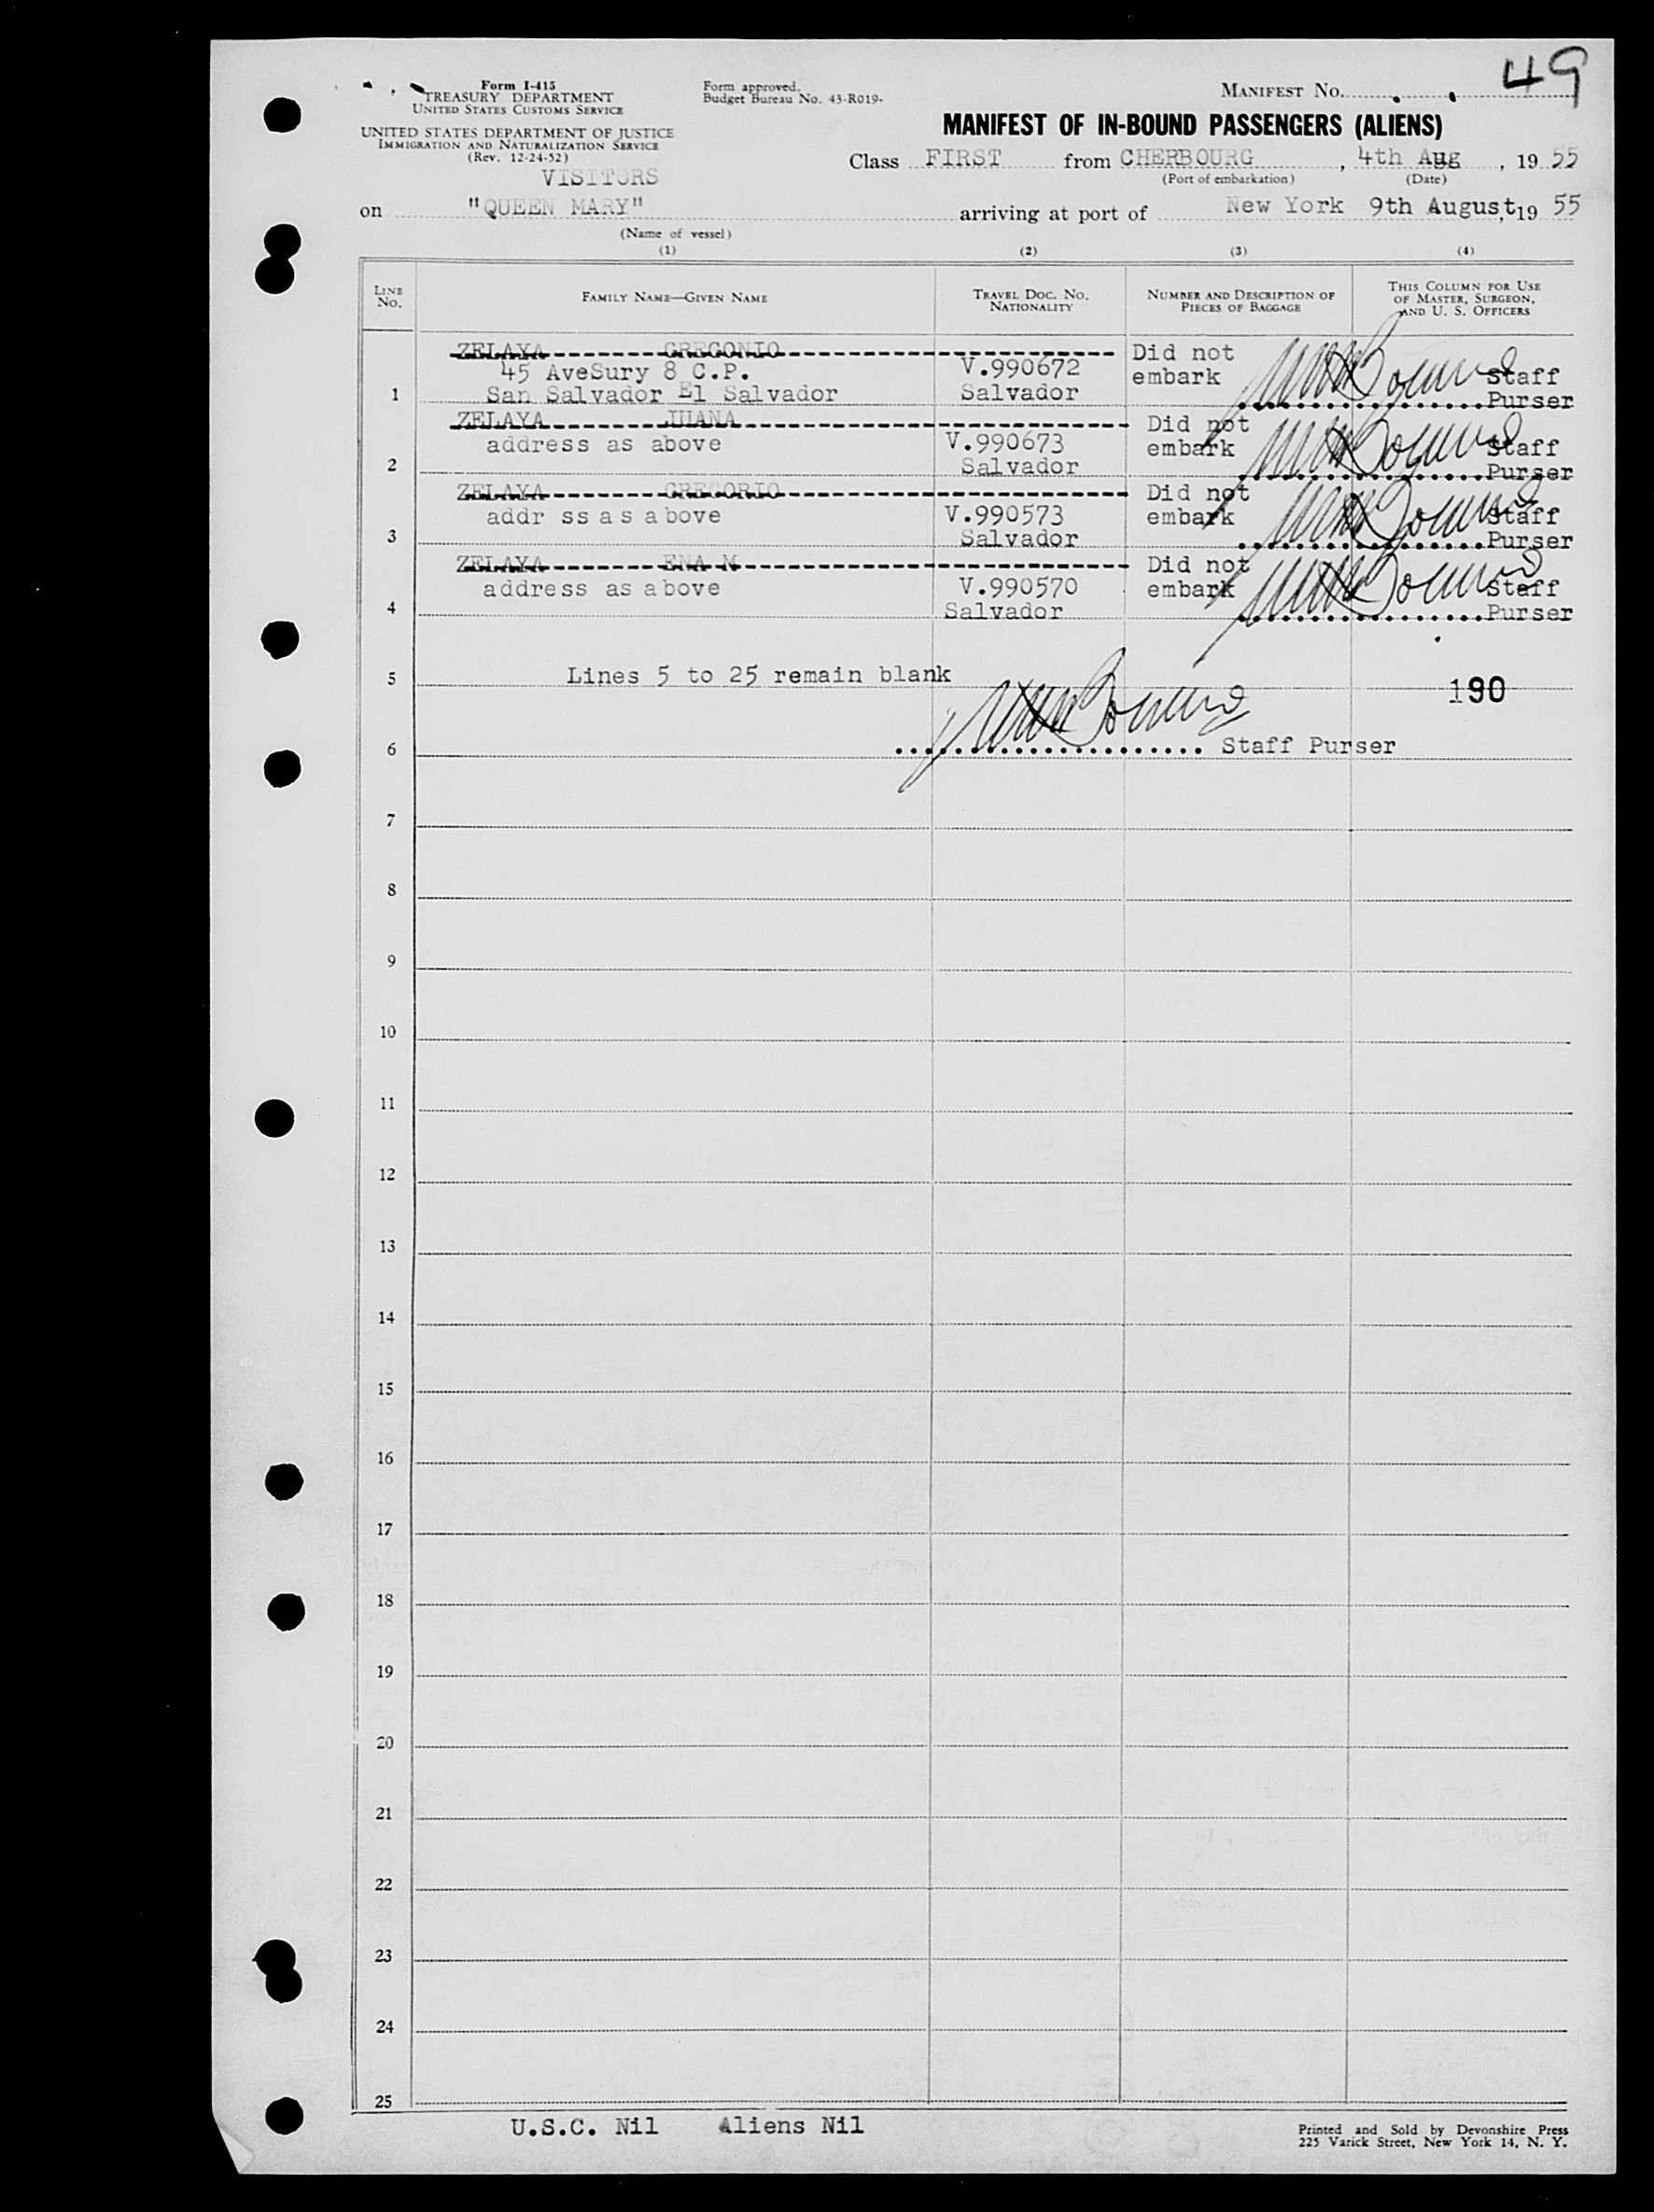 49
Form I-415
TREASURY DEPARTMENT
UNITED STATES CUSTOMS SERVICE
UNITED STATES DEPARTMENT OF JUSTICE
IMMIGRATION AND NATURALIZATION SERVICE
(Rev. 12-24-52)
Form approved.
Budget Bureau No. 43-R019-
MANIFEST No.
MANIFEST OF IN-BOUND PASSENGERS (ALIENS)
Class FIRST from CHERBOURG, 4th Aug, 19 55
(Port of embarkation) (Date)
VISITORS
on "QUEEN MARY" arriving at port of New York 9th August, 19 55
(Name of vessel)
(1) (2) (3) (4)
LINE No. FAMILY NAME—GIVEN NAME TRAVEL DOC. No. NATIONALITY NUMBER AND DESCRIPTION OF PIECES OF BAGGAGE THIS COLUMN FOR USE OF MASTER, SURGEON, AND U. S. OFFICERS
ZELAYA GREGONIO Did not
45 AveSury 8 C.P. V.990672 embark Staff
1 San Salvador El Salvador Salvador Purser
ZELAYA JUANA Did not
address as above V.990673 embark Staff
2 Salvador Purser
ZELAYA GREGORIO Did not
addr ss as above V.990573 embark Staff
3 Salvador Purser
ZELAYA ENA M Did not
address as above V.990570 embark Staff
4 Salvador Purser
5 Lines 5 to 25 remain blank 190
6 Staff Purser
7
8
9
10
11
12
13
14
15
16
17
18
19
20
21
22
23
24
25
U.S.C. Nil Aliens Nil
Printed and Sold by Devonshire Press
225 Varick Street, New York 14, N. Y.